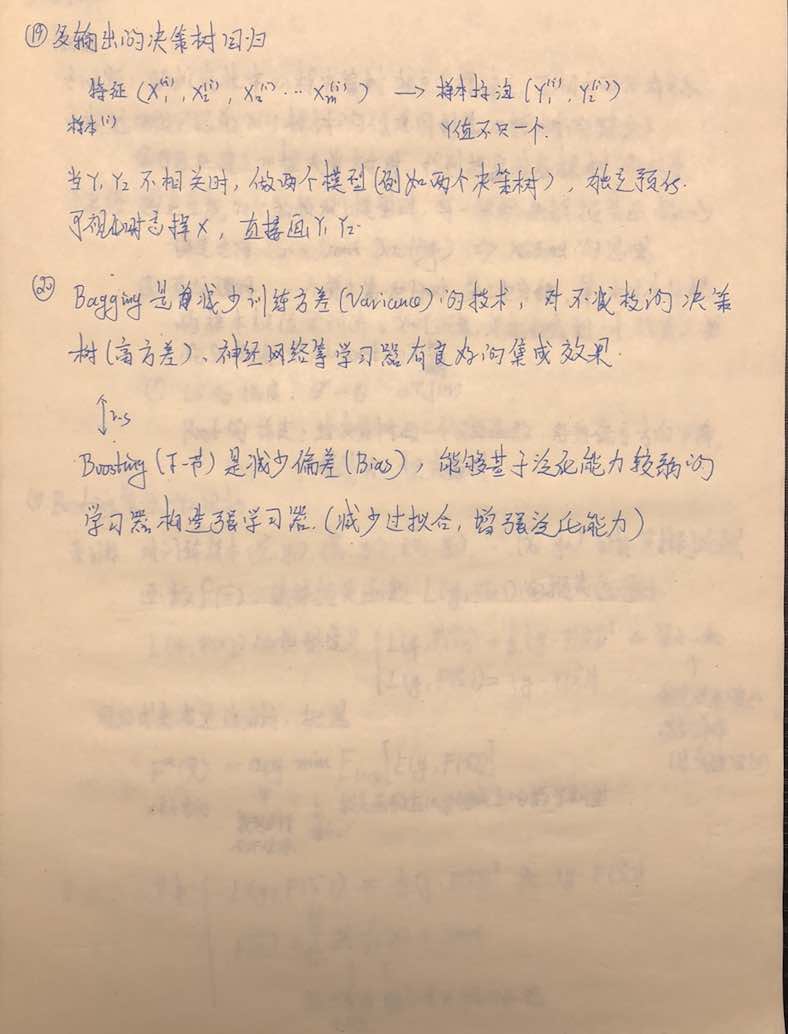 ⑲ 多输出的决策树回归
特征 (X₁⁽ⁱ⁾, X₂⁽ⁱ⁾, X₃⁽ⁱ⁾ ⋯ Xₘ⁽ⁱ⁾) → 样本标注 (Y₁⁽ⁱ⁾, Y₂⁽ⁱ⁾)
样本⁽ⁱ⁾ Y值不只一个.
当Y₁ Y₂ 不相关时, 做两个模型(例如两个决策树), 独立预估.
可视化时舍掉X, 直接画Y₁ Y₂.
⑳ Bagging 是减少训练方差(Variance)的技术, 对不减枝的决策
树(高方差)、神经网络等学习器有良好的集成效果.
↕ vs
Boosting (下一节) 是减少偏差(Bias), 能够基于泛化能力较弱的
学习器构造强学习器. (减少过拟合, 增强泛化能力)